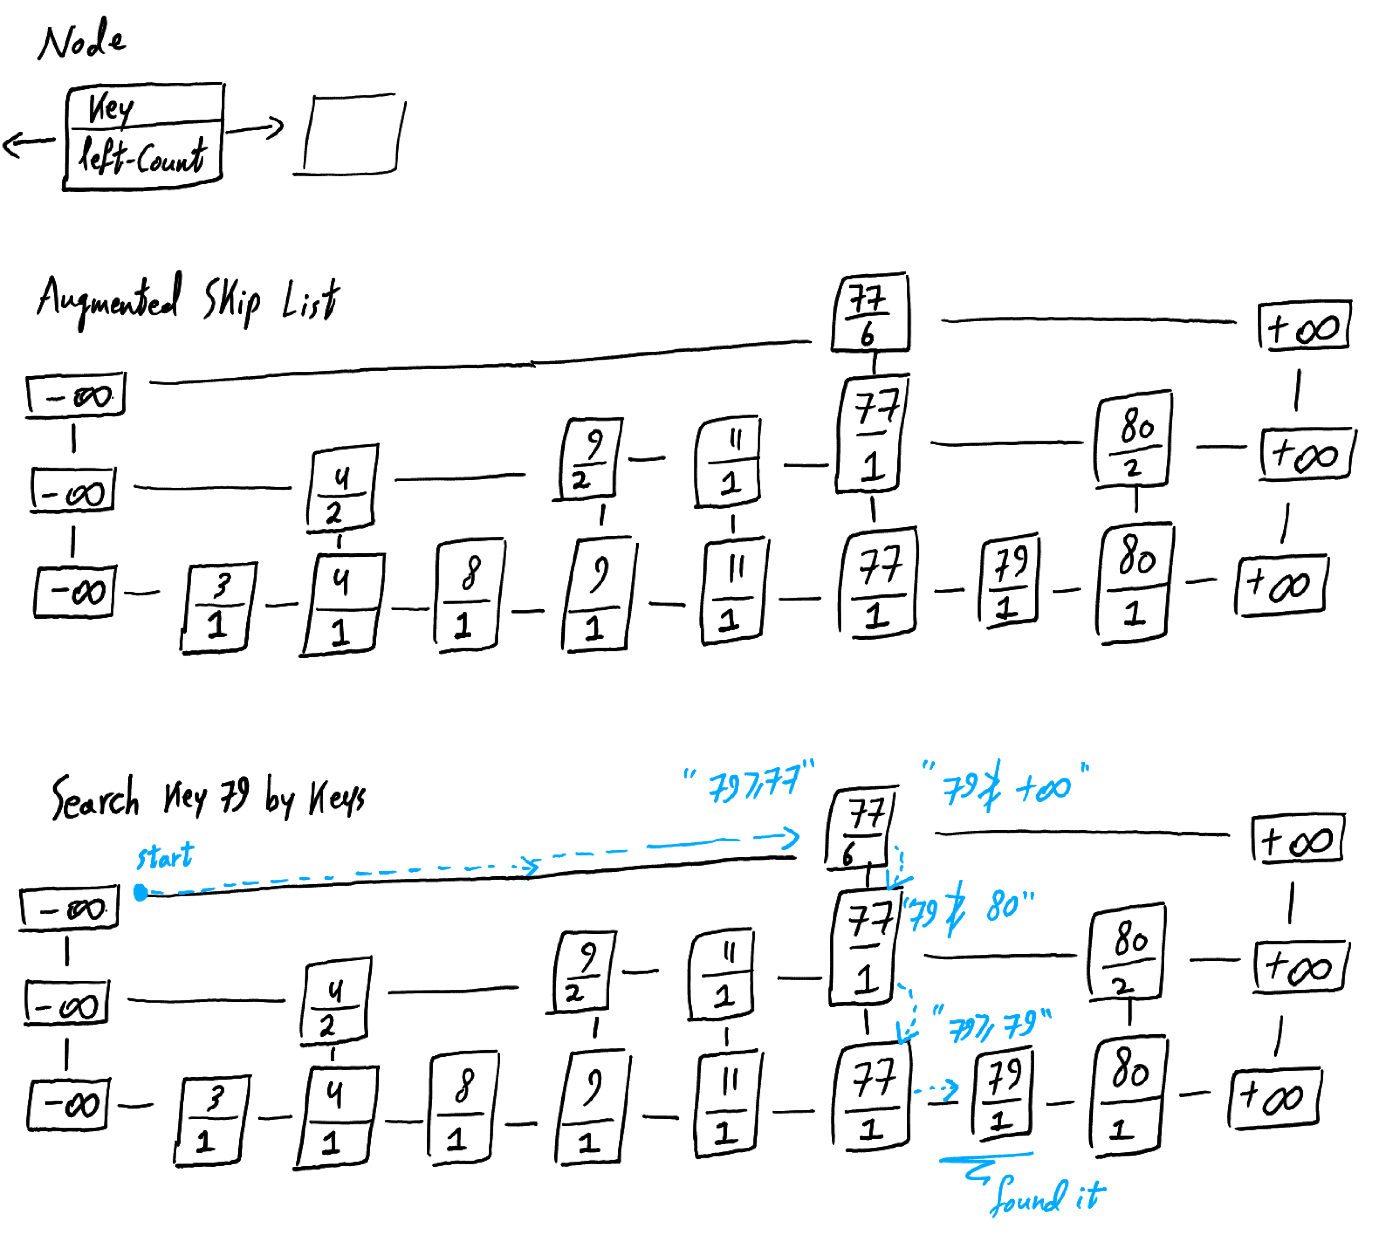 Node
Key
left-Count
Augmented Skip List
77
6
+∞
-∞
77
1
80
2
+∞
-∞
4
2
9
2
11
1
-∞
3
1
4
1
8
1
9
1
11
1
77
1
79
1
80
1
+∞
Search Key 79 by Keys
"79≥77"
"79≱+∞"
start
77
6
+∞
-∞
77
1
"79≱80"
80
2
+∞
-∞
4
2
9
2
11
1
"79≥79"
-∞
3
1
4
1
8
1
9
1
11
1
77
1
79
1
80
1
+∞
found it